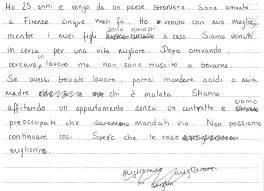 Ho 25 anni e vengo da un paese straniero. Sono arrivato
a Firenze cinque mesi fa. Ho venuto con mio moglie,
mentre i miei figli sono rimasti a casa. Siamo venuti
in cerca per una vita migliore. Dopo arrivando,
cercavo un lavoro ma non sono riuscito a trovarne.
Se avessi trovato lavoro, potrei mandare soldi a mia
madre chi è malata. Stiamo
affitando un appartamento senza un contratto e siamo
preoccupati che saremmo mandati via. Non possiamo
continuare così. Spero che le cose
migliorino.
migliorano migliorare